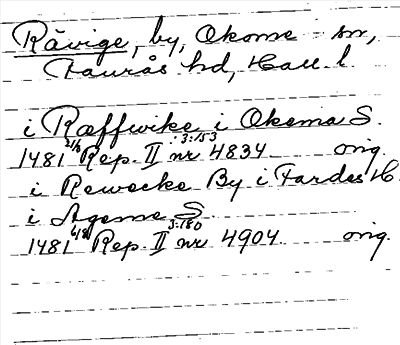 Rävige, by, Okome sn,
Faurås hd, Hall. l.
i Ræffwike i Okema S.
1481 21/6 Rep. II : 3:153 nr 4834 orig.
i Rewecke By i Fardes H.
i Ageme S.
1481 Rep. II 3:180 nr 4904 orig.